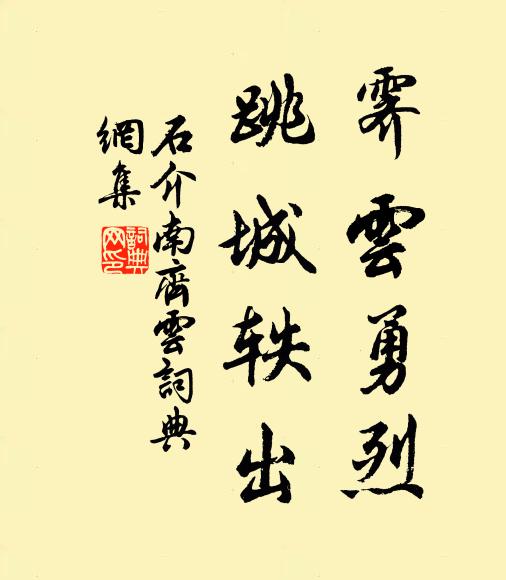 霽雲勇烈
跳城轶出
石介南齊雲詞典
網集
詞典网印